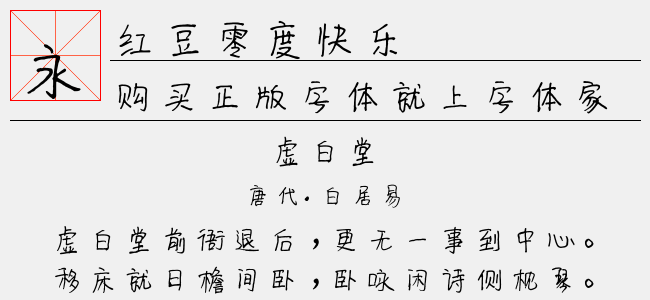 永
红豆零度快乐
购买正版字体就上字体家
虚白堂
唐代.白居易
虚白堂前衙退后,更无一事到中心。
移床就日檐间卧,卧咏闲诗侧枕琴。